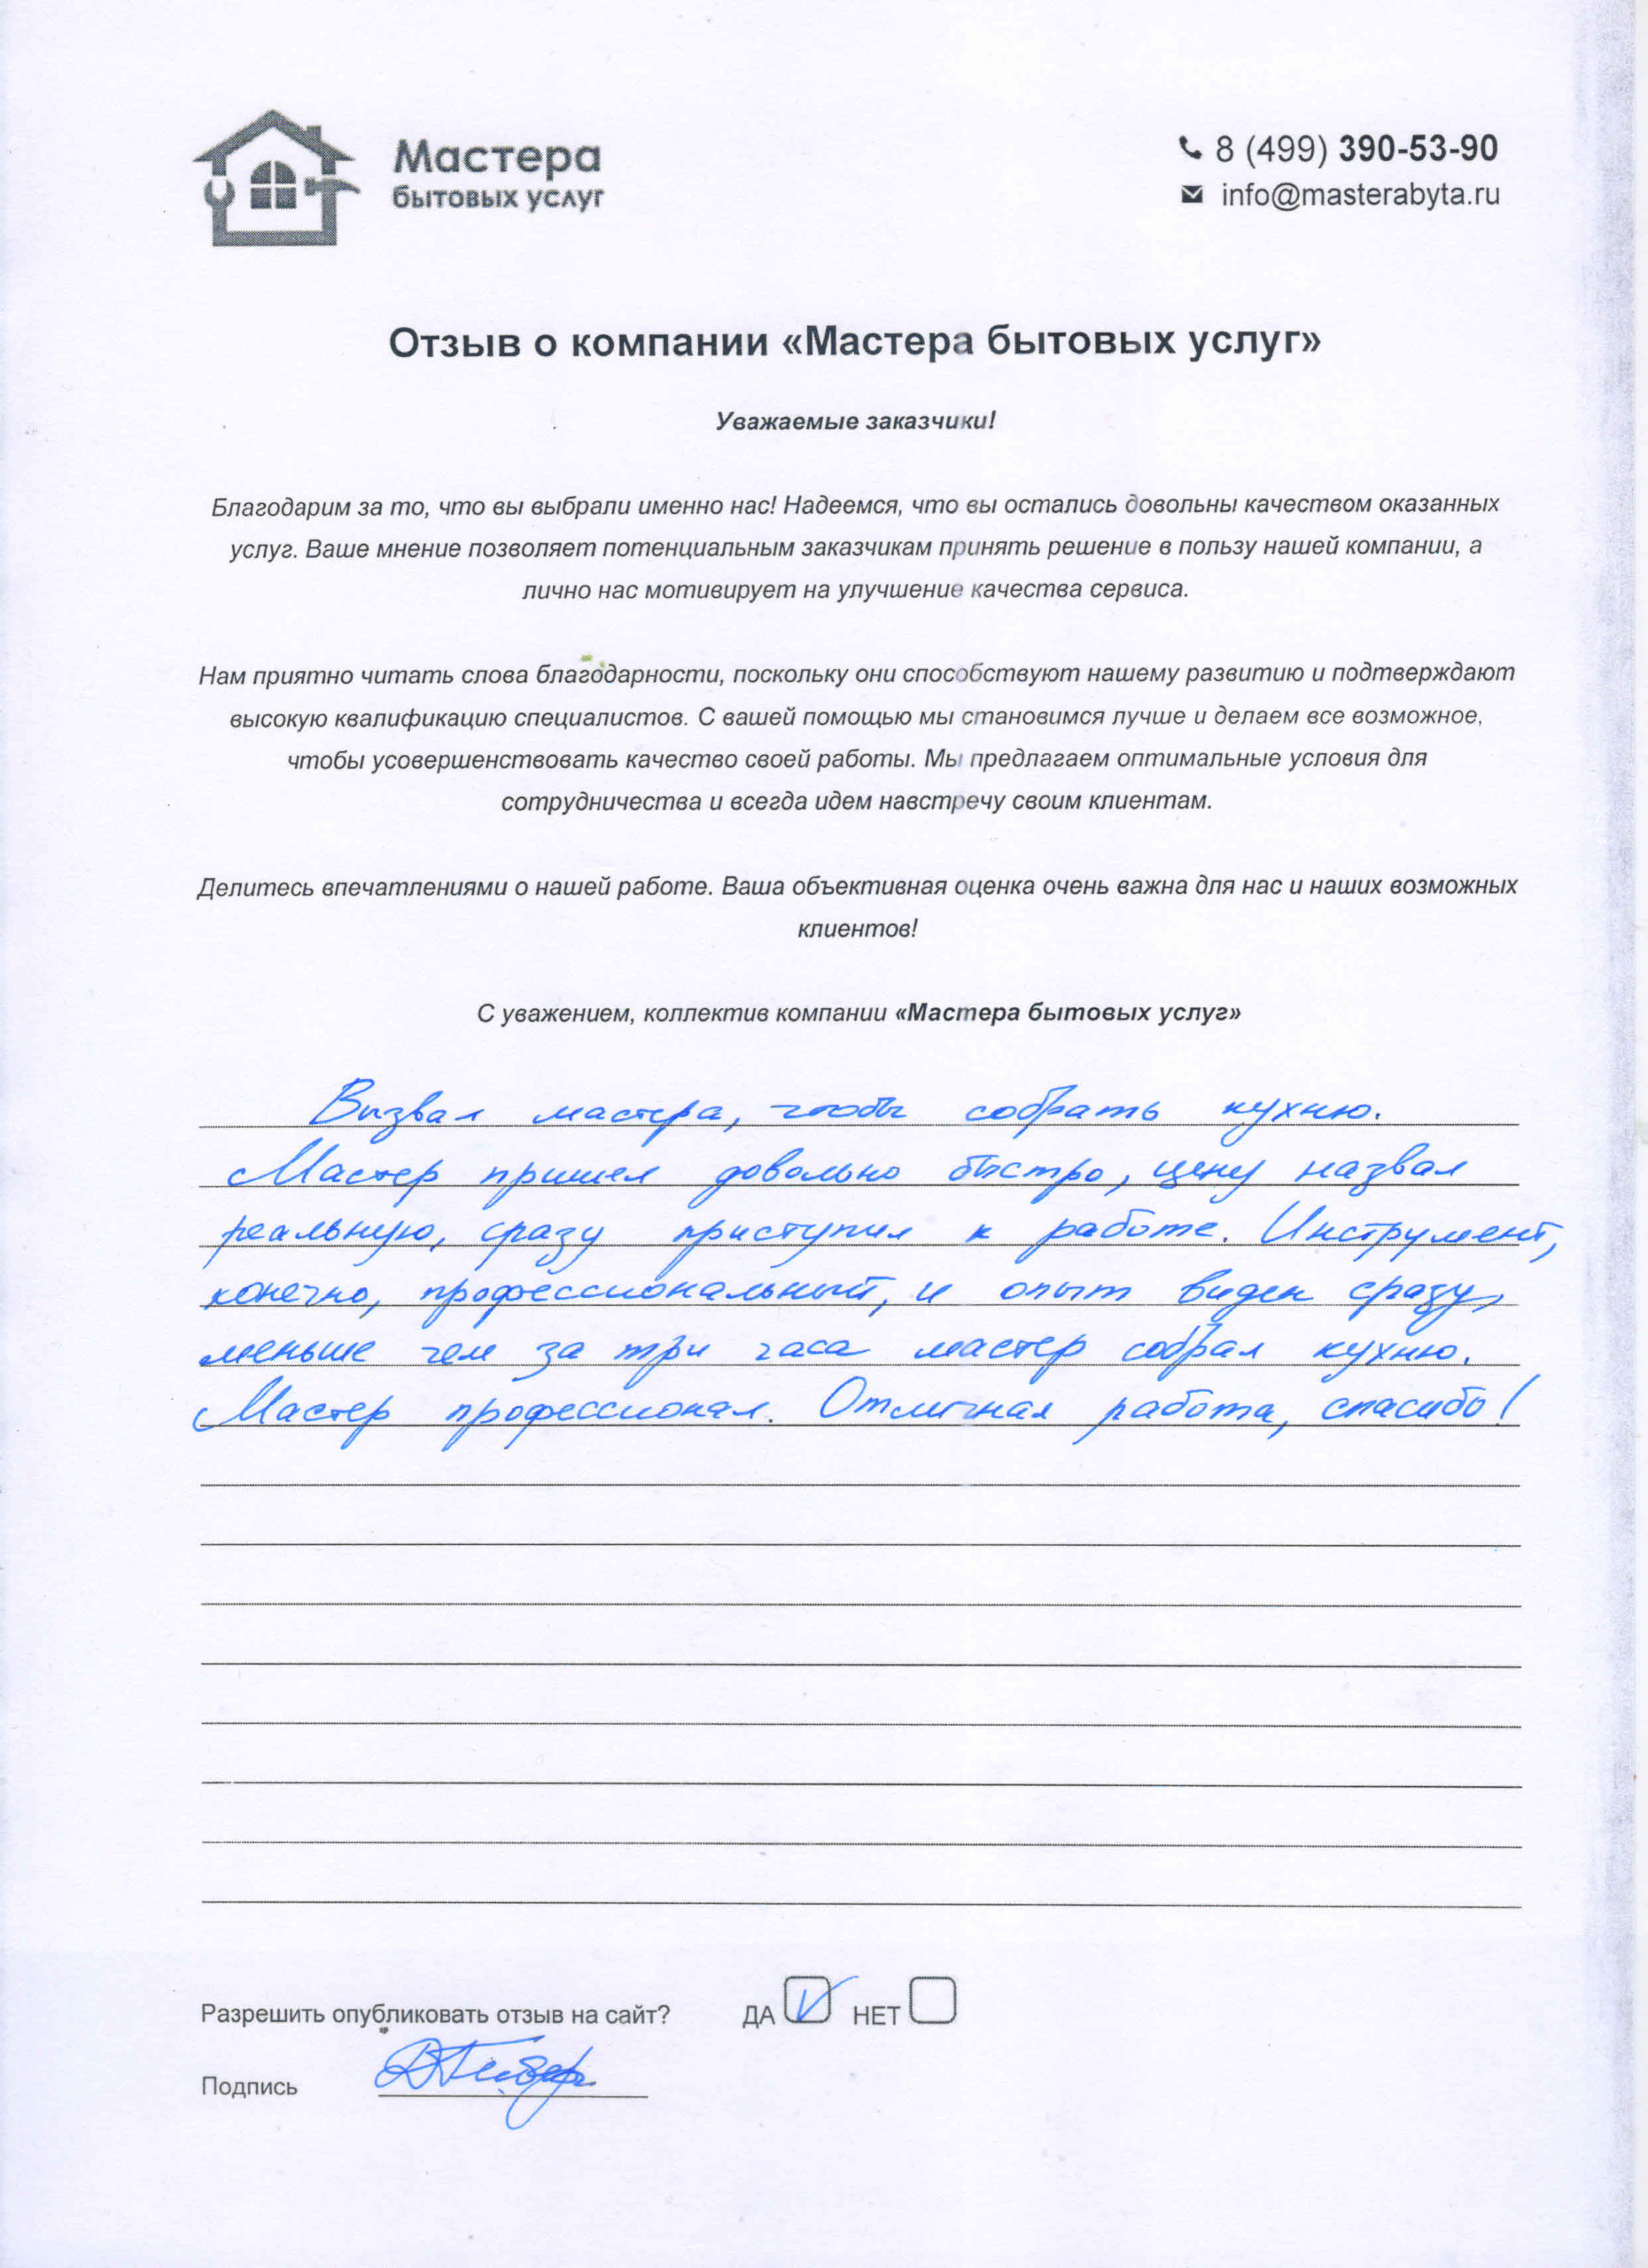 Мастера
бытовых услуг
8 (499) 390-53-90
info@masterabyta.ru
Отзыв о компании «Мастера бытовых услуг»
Уважаемые заказчики!
Благодарим за то, что вы выбрали именно нас! Надеемся, что вы остались довольны качеством оказанных
услуг. Ваше мнение позволяет потенциальным заказчикам принять решение в пользу нашей компании, а
лично нас мотивирует на улучшение качества сервиса.
Нам приятно читать слова благодарности, поскольку они способствуют нашему развитию и подтверждают
высокую квалификацию специалистов. С вашей помощью мы становимся лучше и делаем все возможное,
чтобы усовершенствовать качество своей работы. Мы предлагаем оптимальные условия для
сотрудничества и всегда идем навстречу своим клиентам.
Делитесь впечатлениями о нашей работе. Ваша объективная оценка очень важна для нас и наших возможных
клиентов!
С уважением, коллектив компании «Мастера бытовых услуг»
Вызвал мастера, чтобы собрать кухню.
Мастер пришел довольно быстро, цену назвал
реальную, сразу приступил к работе. Инструмент,
конечно, профессиональный, и опыт виден сразу,
меньше чем за три часа мастер собрал кухню.
Мастер профессионал. Отличная работа, спасибо!
Разрешить опубликовать отзыв на сайт? ДА НЕТ
Подпись